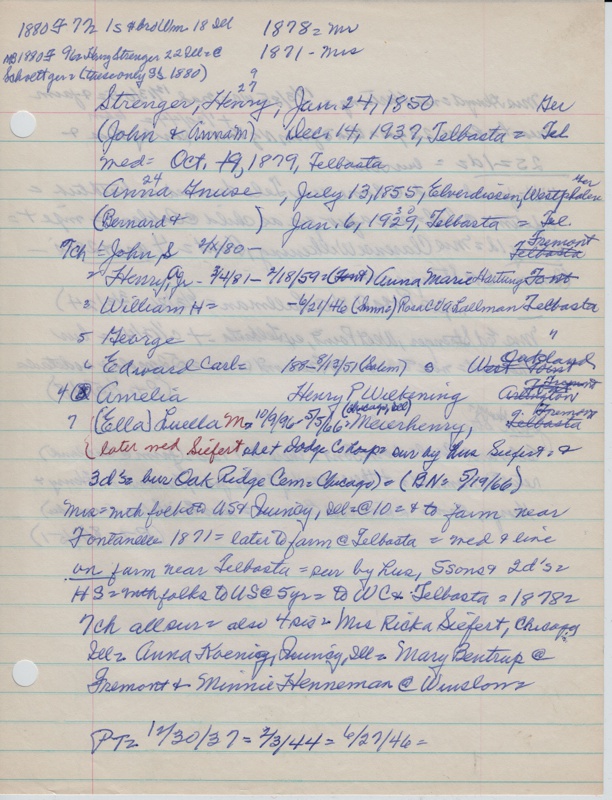 1880 F 72 1s & brd Wm 18 Ill 1878 = Mr
NB 1880 F 96 = Henry Strenger 22 Ill = @ 1871 - Mrs
Schoettger = (these only 3S 1880)
9
27
Strenger, Henry, Jan. 24, 1850 Ger
(John & Anna m) Dec. 14, 1937, Telbasta = Tel
med = Oct, 19, 1879, Telbasta
24
Anna Gnuse, July 13, 1855, Elverdissen, Westphalen Ger
(Bernard & ) Jan. 6, 1929, 30 Telbasta = Tel.
7ch 1 = John S 2/X/80 - Fremont Telbasta
2 Henry, Jr - 3/4/81 - 2/18/59 = (Font) Anna Marie Hartung Font
3 = William H = - 6/21/46 (Imm) Rosa C O A Lallman Telbasta
5 George "
6 Edward Carl = 188 - 8/13/51 (Salem) S Oakland West Point
4 Amelia Henry P Wilkening Fremont Arlington
7 (Ella) Luella M = 10/9/96 - 5/5/66 = (Chicago, Ill) Meierhenry, Fremont Telbasta
(later med Siefert she + Dodge Co = sur by hus Siefert = &
3 d's = bur Oak Ridge Cem = Chicago) = (BN = 5/19/66)
Mrs = mth folks to US & Quincy, Ill = @ 10 = & to farm near
Fontanelle 1871 = later to farm @ Telbasta = med & live
on farm near Telbasta = sur by hus, 5 sons & 2 d's =
HS = mth folks to US @ 5 yr = to WC & Telbasta = 1878 =
7ch all sur = also 4 sis = Mrs Ricka Siefert, Chicago,
Ill = Anna Koenig, Quincy, Ill = Mary Bentrup @
Fremont & Minnie Henneman @ Winslow =
PT = 12/30/37 = 2/3/44 = 6/27/46 =